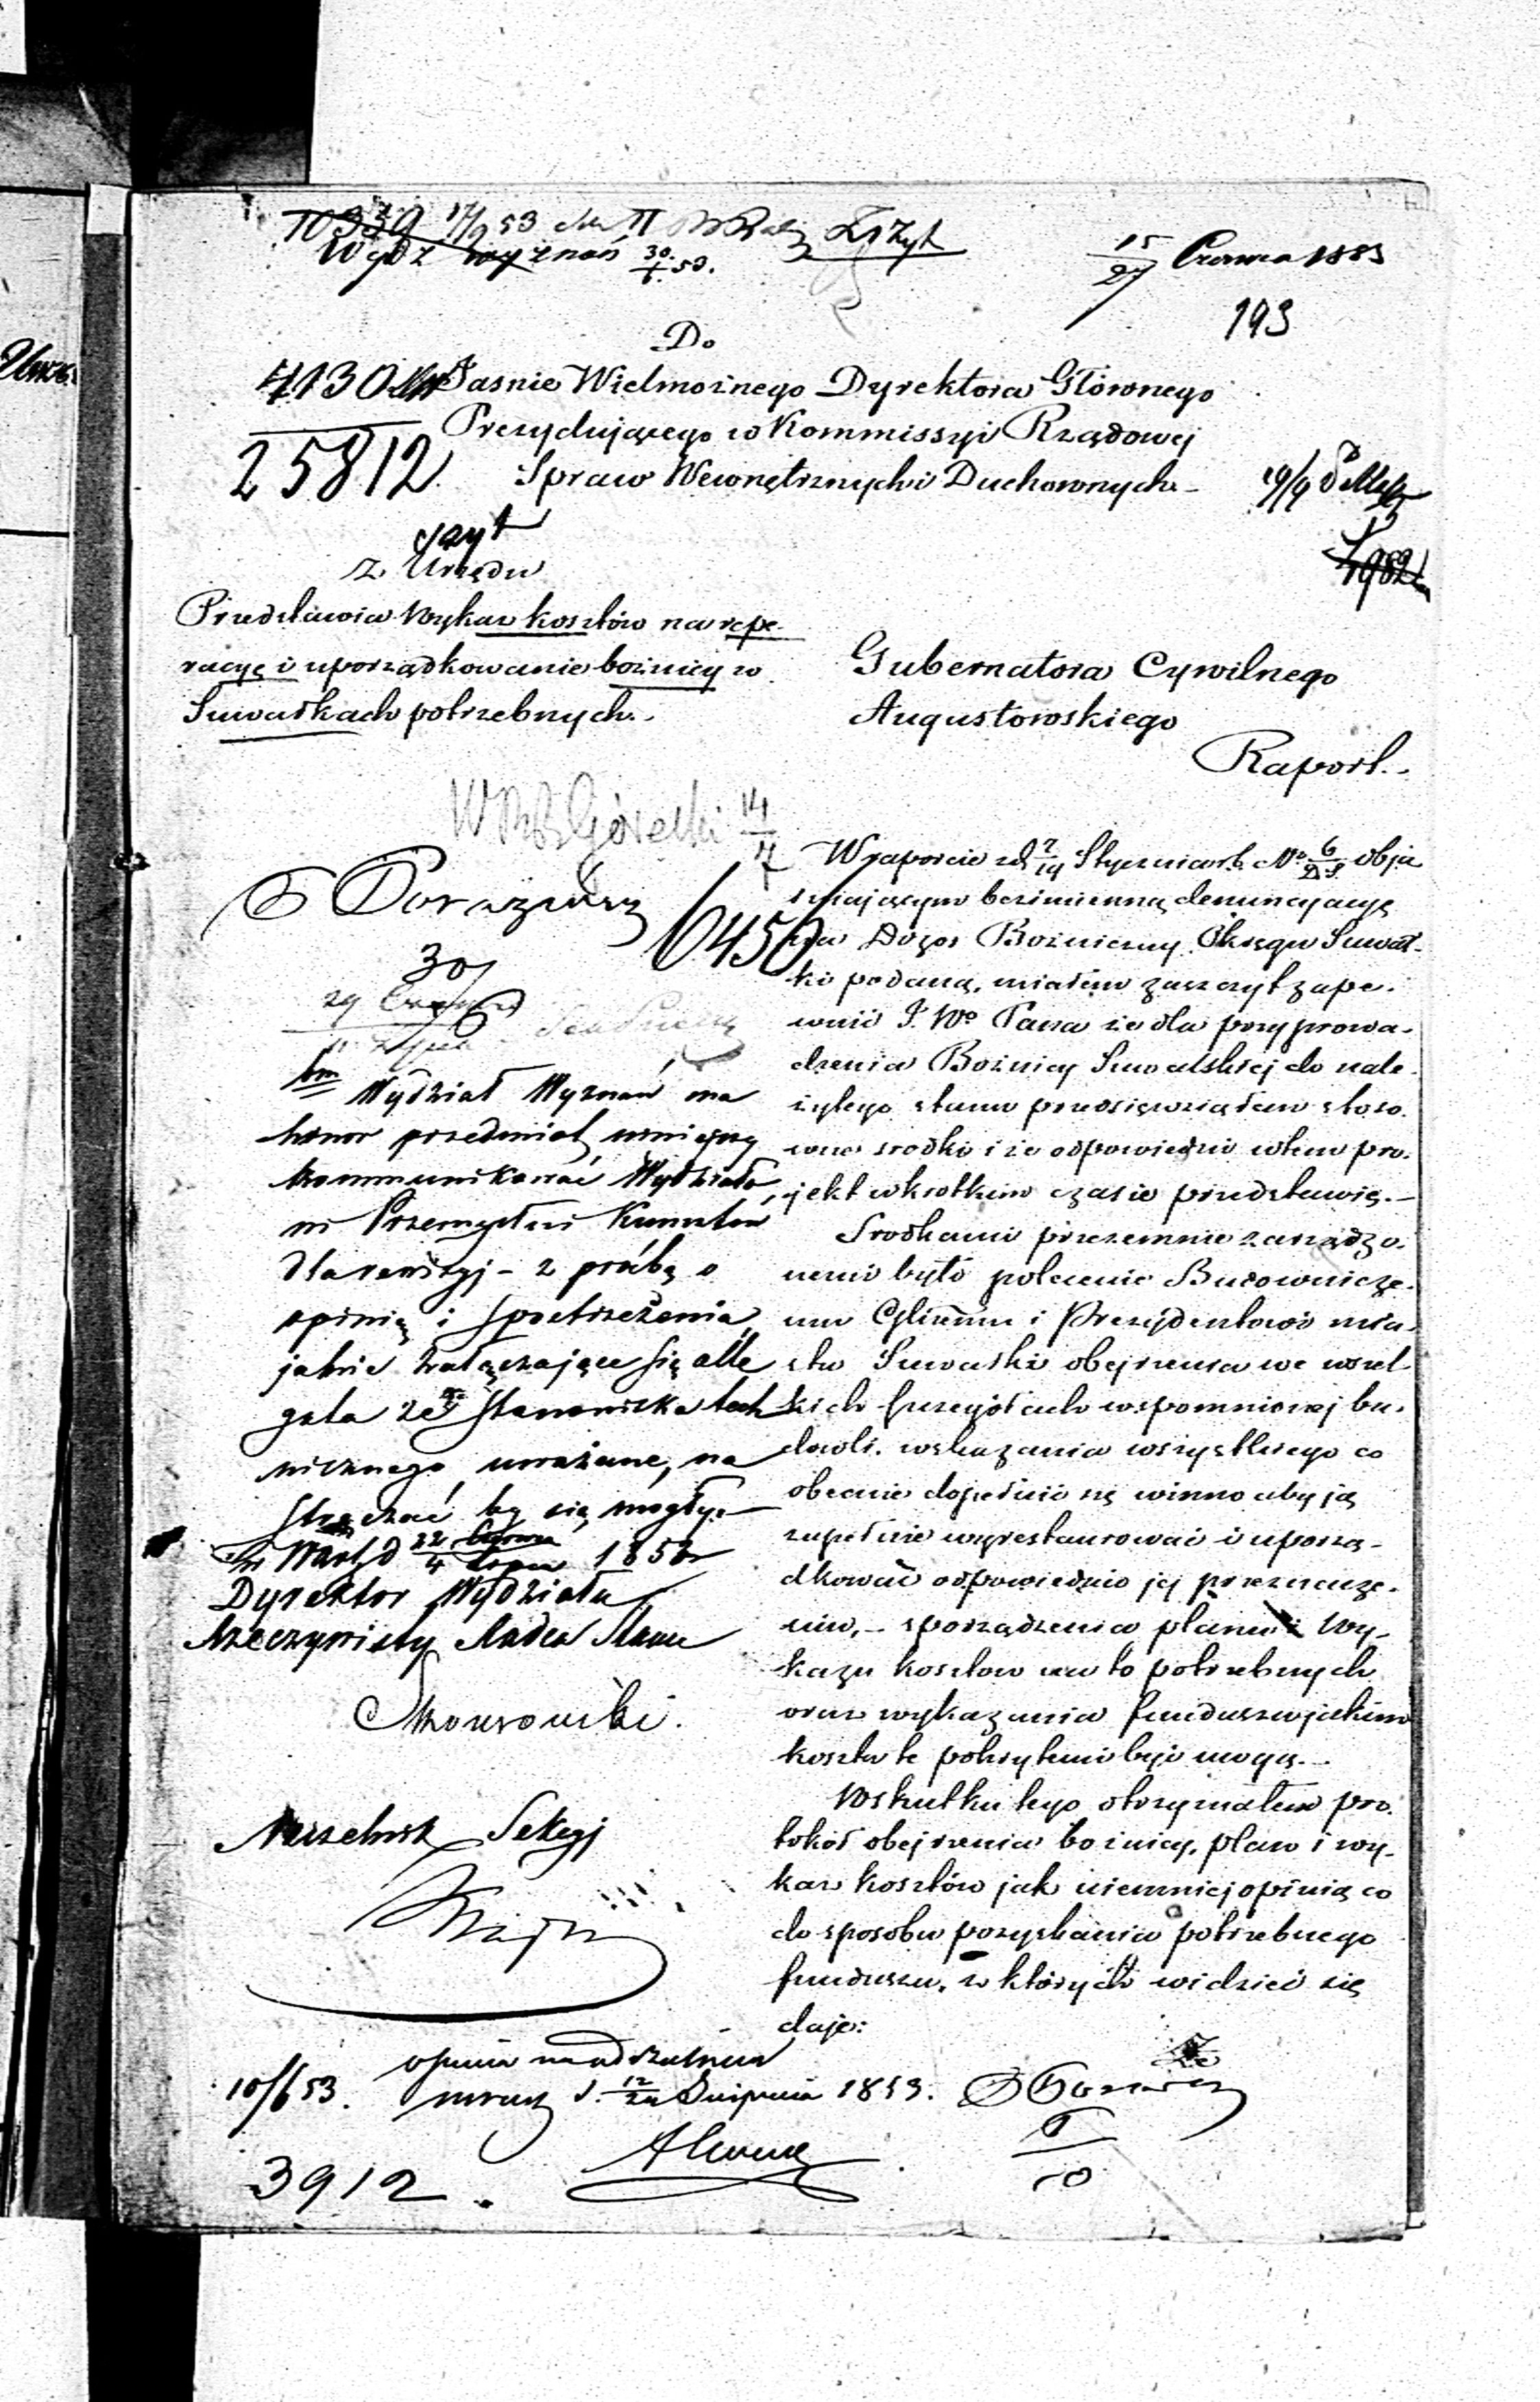 10339 17/9 53
Wydz Wyznań 30/6 53.
15/27 Czerwca 1853
193
Do
Jaśnie Wielmożnego Dyrektora Głównego
Prezydującego w Kommissyi Rządowej
Spraw Wewnętrznych i Duchownych
4130
25812
z Urzędu
Przedstawia wykaz kosztów na repe-
racyę i uporządkowanie bożnicy w
Suwałkach potrzebnych.
Gubernatora Cywilnego
Augustowskiego
Raport.
14/7
6450
30/6
Wydział Wyznań ma
honor przedmiot niniejszy
kommunikować Wydziało
wi Przemysłu i Kunsztów
dla rewizyi - z prośbą o
opinią i spostrzeżenia
jakie załączające się alle
gata ze stanowiska tech
nicznego uważane, na
stręczać by się mogły.
w Warsz d 22 Czerwca/4 Lipca 1853 r
Dyrektor Wydziału
Rzeczywisty Radca Stanu
Naczelnik Sekcyj
W raporcie z d 2/14 Stycznia r. b. No 6/DS. obja
śniającym bezimienną denuncyacyę
na Dozór Bożniczny Okręgu Suwał-
ki podaną, miałem zaszczyt zape-
wnić J. Wo Pana że dla przyprowa-
dzenia Bożnicy Suwalskiej do nale-
żytego stanu przedsięwziąłem stoso-
wne środki i że odpowiedni w tem pro-
jekt w krótkim czasie przedstawię.-
Środkami przezemnie zarządzo-
nemi było polecenie Budownicze-
mu Cyliemu i Prezydentowi mia-
sta Suwałki obejrzenia we wszel
kich szczegółach wspomnionej bu-
dowli. wskazania wszystkiego co
obecnie dopełnić się winno aby ją
zupełnie wyrestaurować i uporzą-
dkować odpowiednio jej przeznacze-
niu,- sporządzenia planu i wy-
kazu kosztów na to potrzebnych
oraz wykazania funduszu jakim
koszta te pokrytemi być mogą.-
Wskutku tego otrzymałem pro-
tokół obejrzenia bożnicy, plan i wy-
kaz kosztów jak niemniej opinią co
do sposobu pozyskania potrzebnego
funduszu, z których widzieć się
daje:
10/6 53.
Sierpnia 1853.
3912.